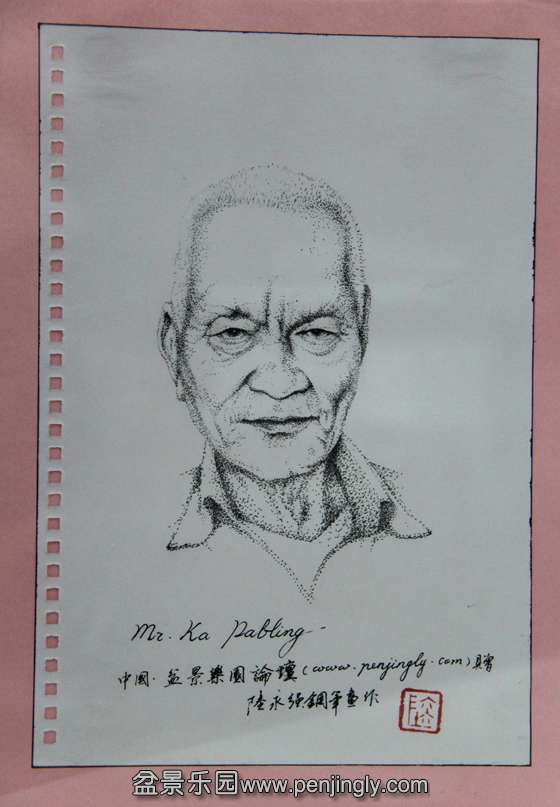 Mr. Ka Pabling
中國·盆景樂園論壇(www.penjingly.com)具贈
陸永强鋼筆畫作
陸
盆景乐园www.penjingly.com